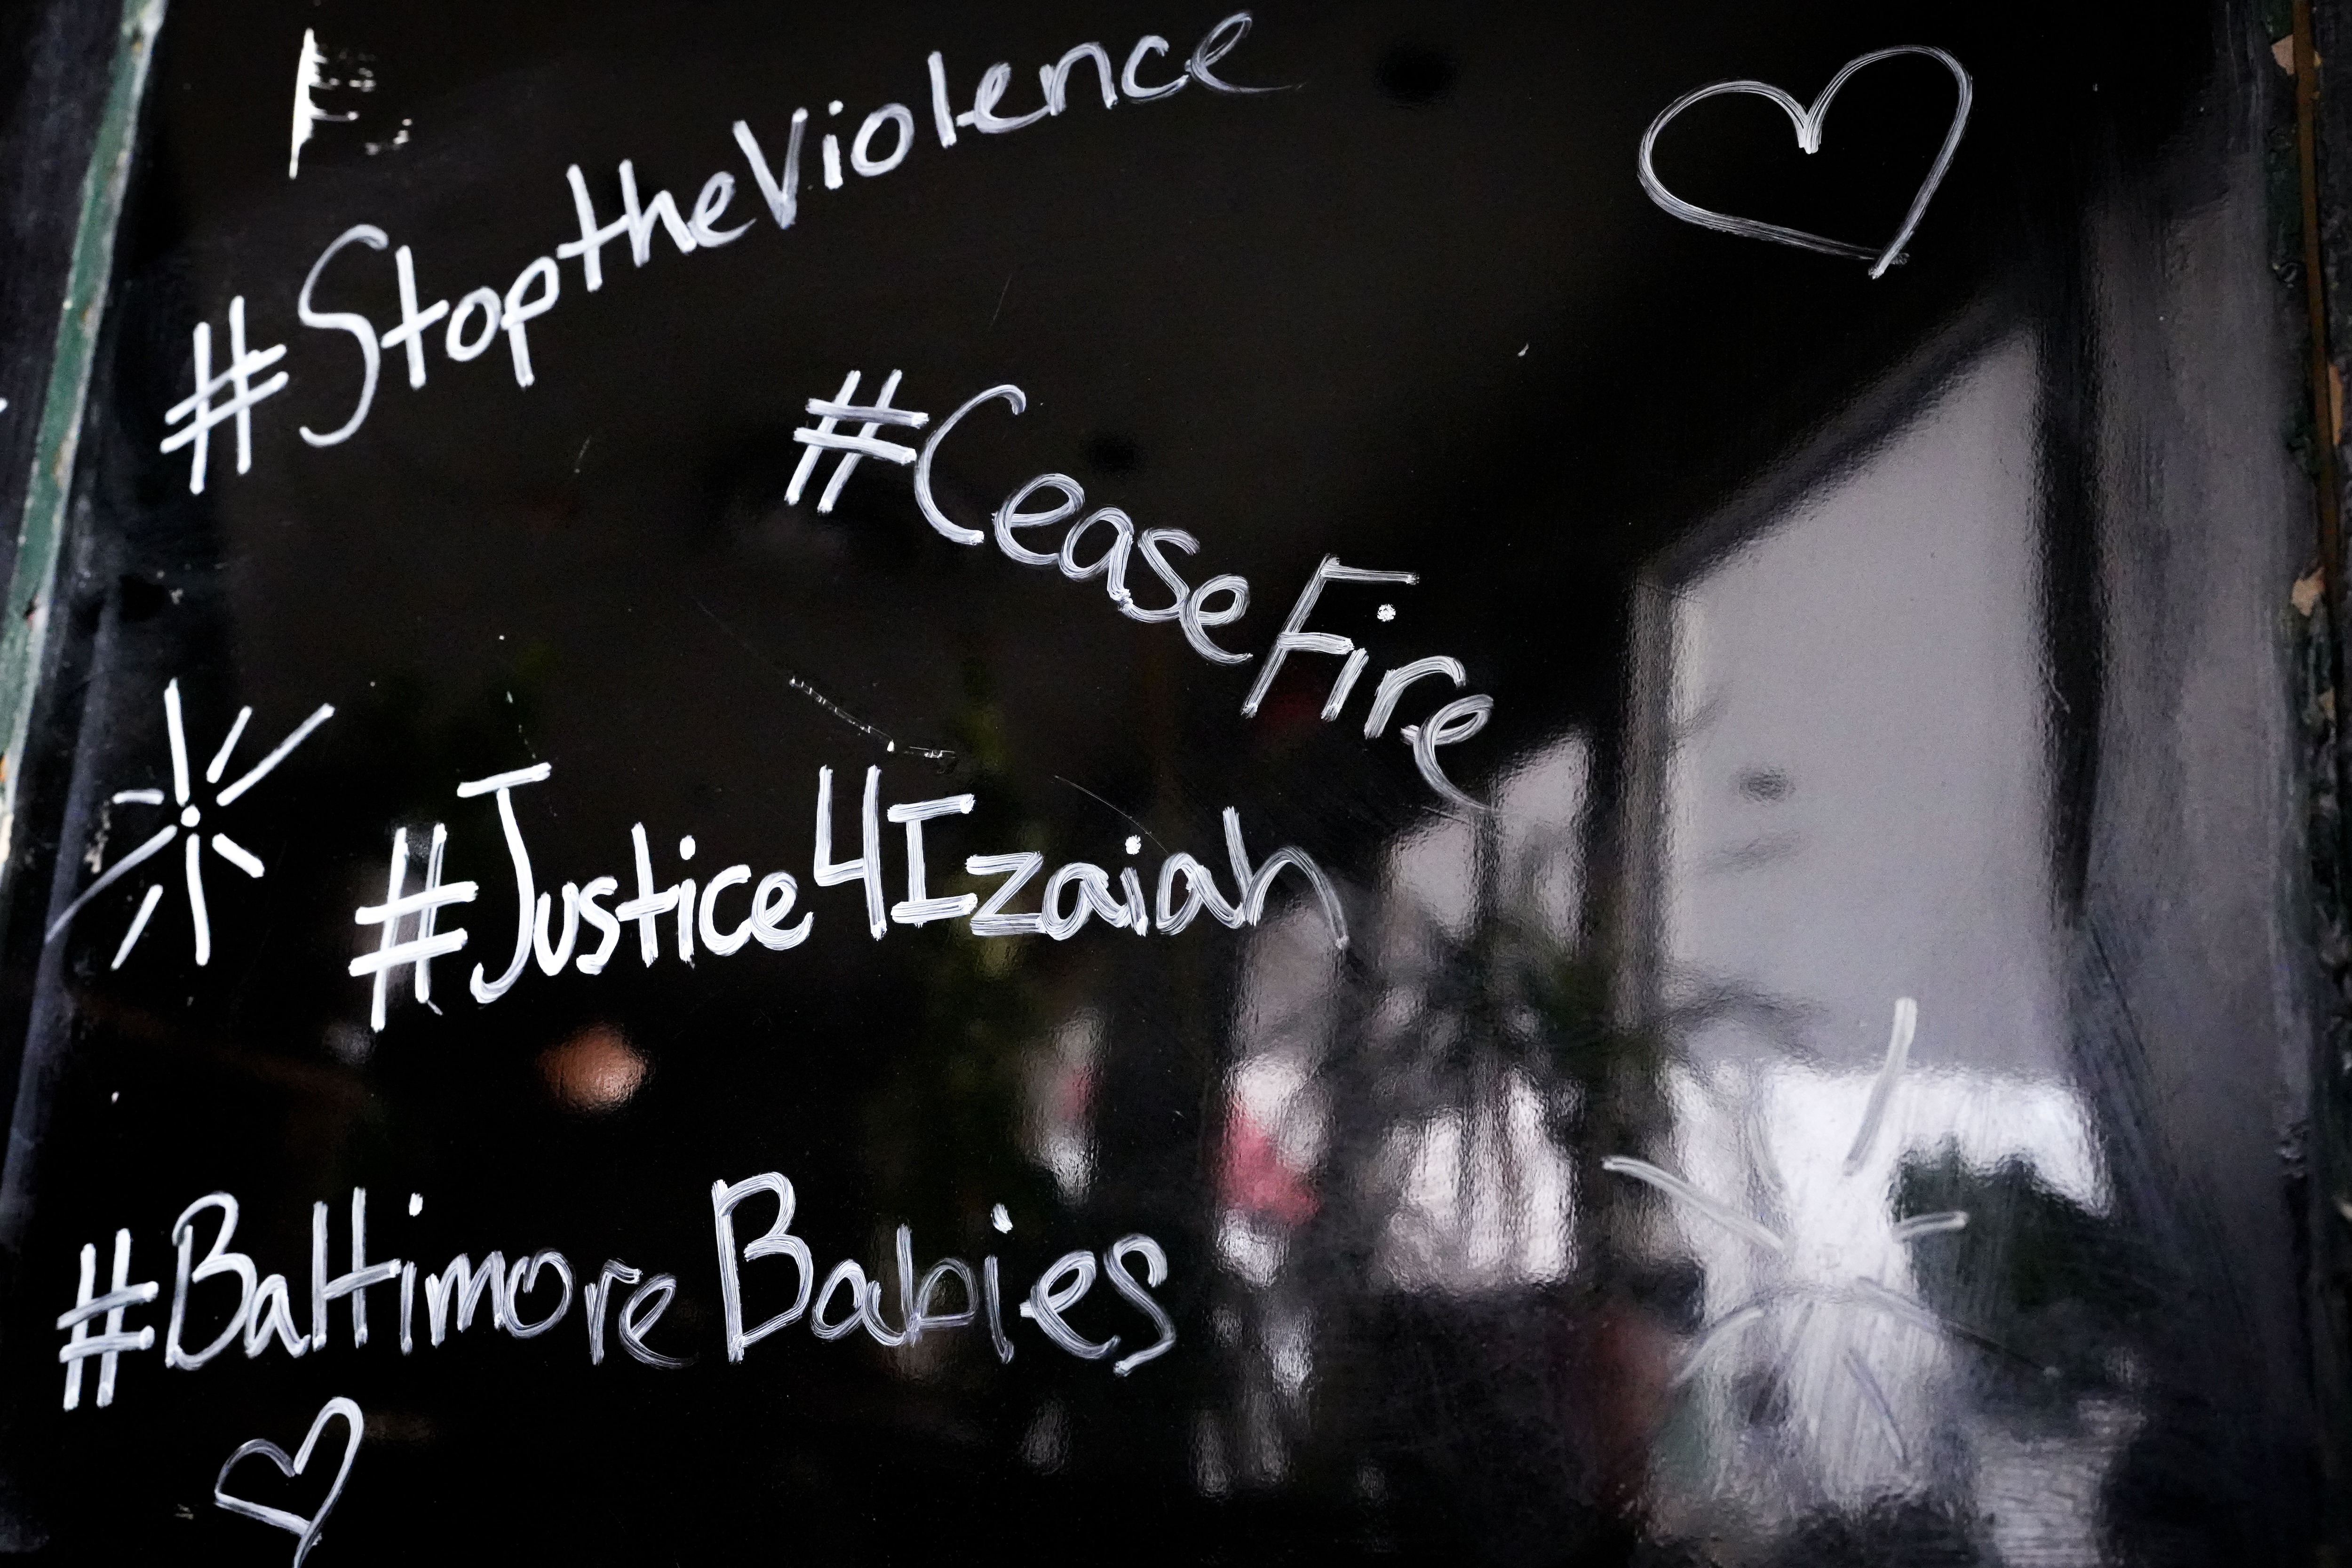 #StoptheViolence
#CeaseFire
#Justice4Izaiah
#BaltimoreBabies